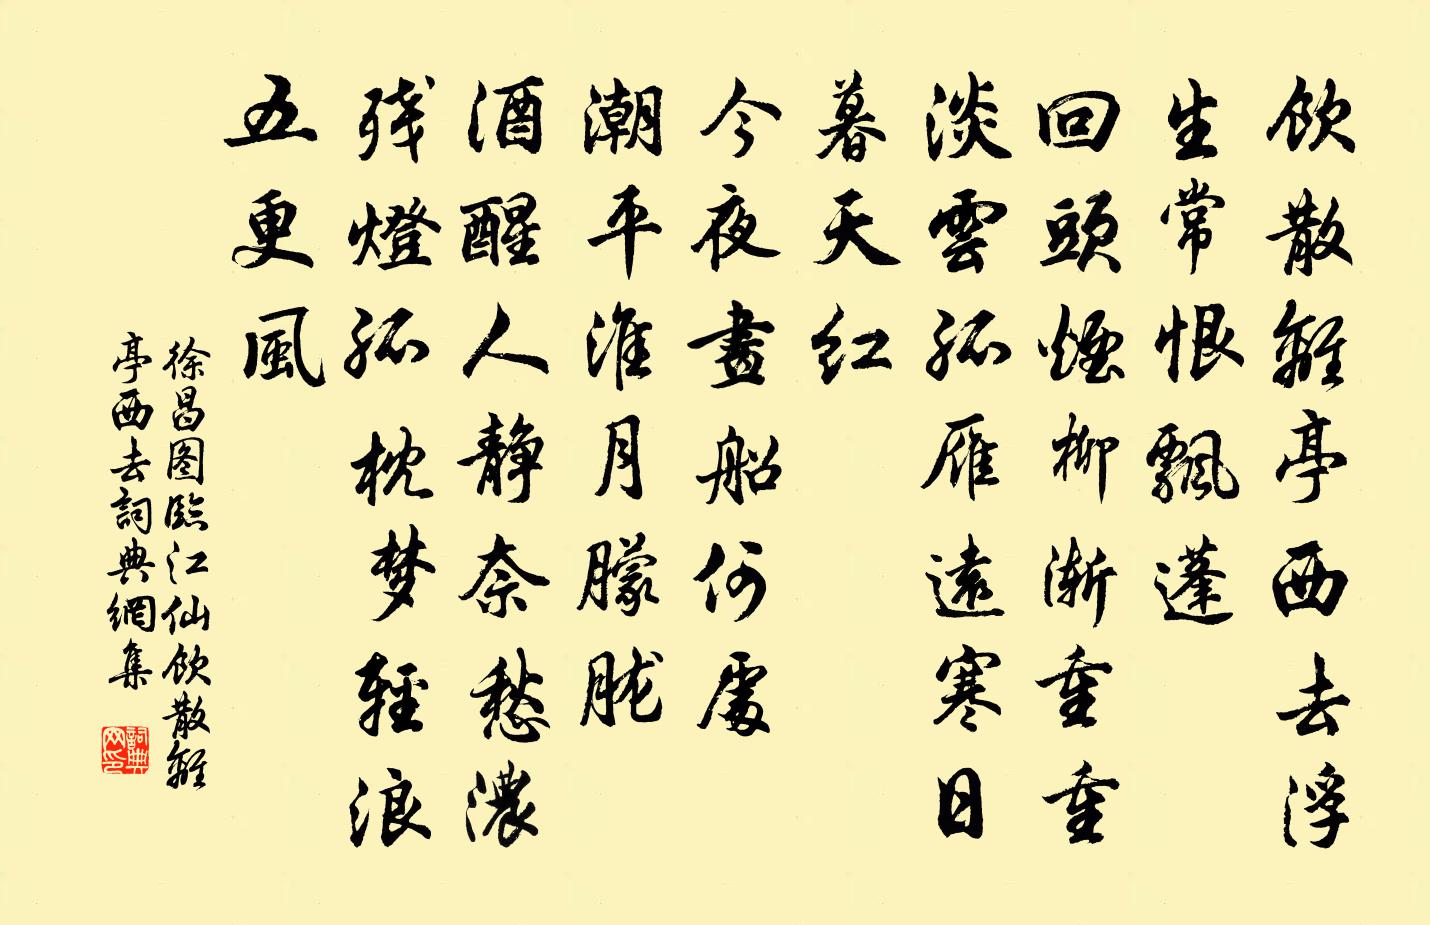 飲散離亭西去浮
生常恨飄蓬
回頭煙柳漸重重
淡雲孤雁遠寒日
暮天红
今夜畫船何處
潮平淮月朦胧
酒醒人静奈愁濃
残燈孤枕梦輕浪
五更風
徐昌图臨江仙飲散離
亭西去詞典網集
詞典网印